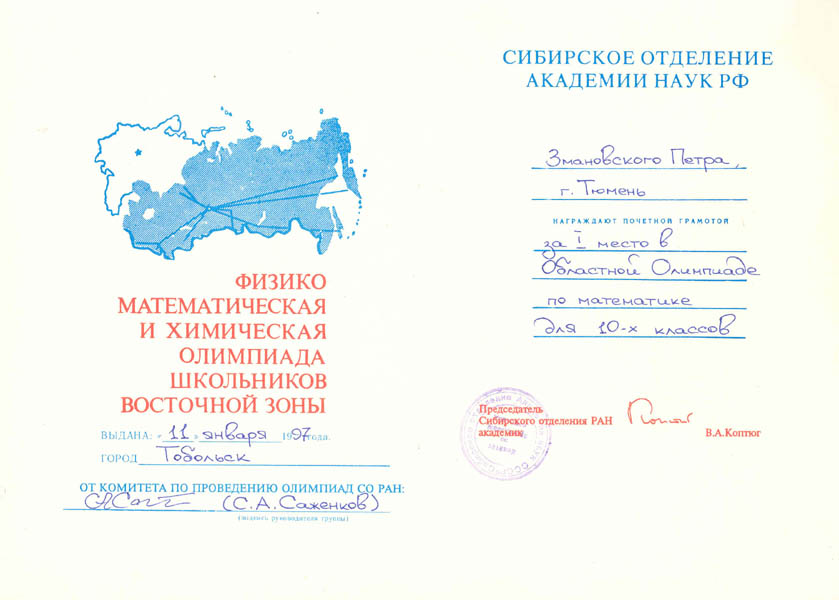 ФИЗИКО
МАТЕМАТИЧЕСКАЯ
И ХИМИЧЕСКАЯ
ОЛИМПИАДА
ШКОЛЬНИКОВ
ВОСТОЧНОЙ ЗОНЫ
ВЫДАНА: «11» января 1997года.
ГОРОД Тобольск
ОТ КОМИТЕТА ПО ПРОВЕДЕНИЮ ОЛИМПИАД СО РАН:
(С.А. Саженков)
(подпись руководителя группы)
СИБИРСКОЕ ОТДЕЛЕНИЕ
АКАДЕМИИ НАУК РФ
Змановского Петра,
г. Тюмень
НАГРАЖДАЮТ ПОЧЕТНОЙ ГРАМОТОЙ
за I место в
Областной Олимпиаде
по математике
для 10-х классов
Председатель
Сибирского отделения РАН
академик В.А.Коптюг